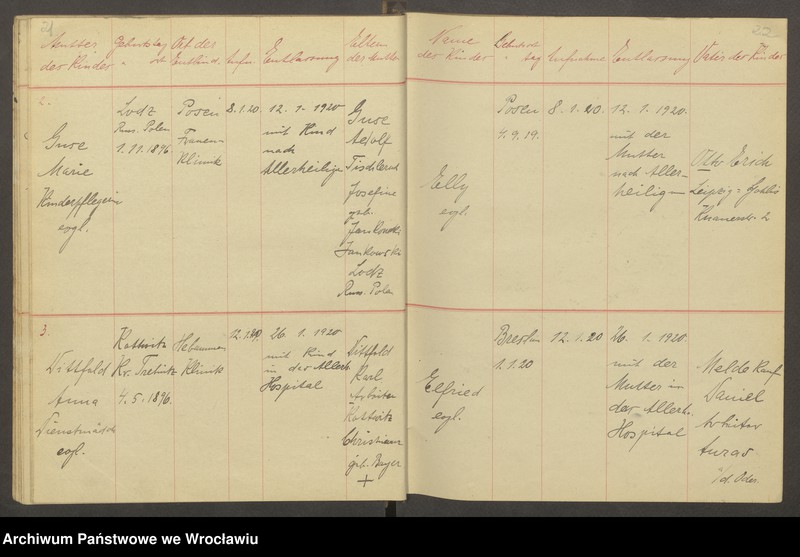 21
Mutter
der Kinder
Geburtstag
" ort
Ort der
Entbind.
Aufn.
Entlassung
Eltern
der Mutter
2.
Guse
Marie
Kinderpflegerin
evgl.
Lodz
Russ. Polen
1.11.1896
Posen
Frauen-
Klinik
8.1.20.
12. 1. 1920
mit Kind
nach
Allerheiligen
Guse
Adolf
Tischler
Josefine
geb.
Jankowski
Lodz
Russ. Polen
3.
Wittfeld
Anna
Dienstmädch
evgl.
Kottwitz
Kr. Trebnitz
4.5.1896.
Hebammen
Klinik
26. 1. 1920
mit Kind
in der Allerh.
Hospital
Wittfeld
Karl
Arbeiter
Kottwitz
Christiane
geb. Bayer
+
22
Name
der Kinder
Geburtsort
" tag
Aufnahme
Entlassung
Vater der Kinder
Elly
evgl.
Posen
4.9.19.
8. 1. 20
12. 1. 1920.
mit der
Mutter
nach Aller-
heiligen
Otto Erich
Leipzig-Gohlis
Elfried
evgl.
Breslau
1.1.20
12.1.20
26. 1. 1920.
mit der
Mutter in
der Allerh.
Hospital
Daniel
Arbeiter
Auras
a/d. Oder
Archiwum Państwowe we Wrocławiu